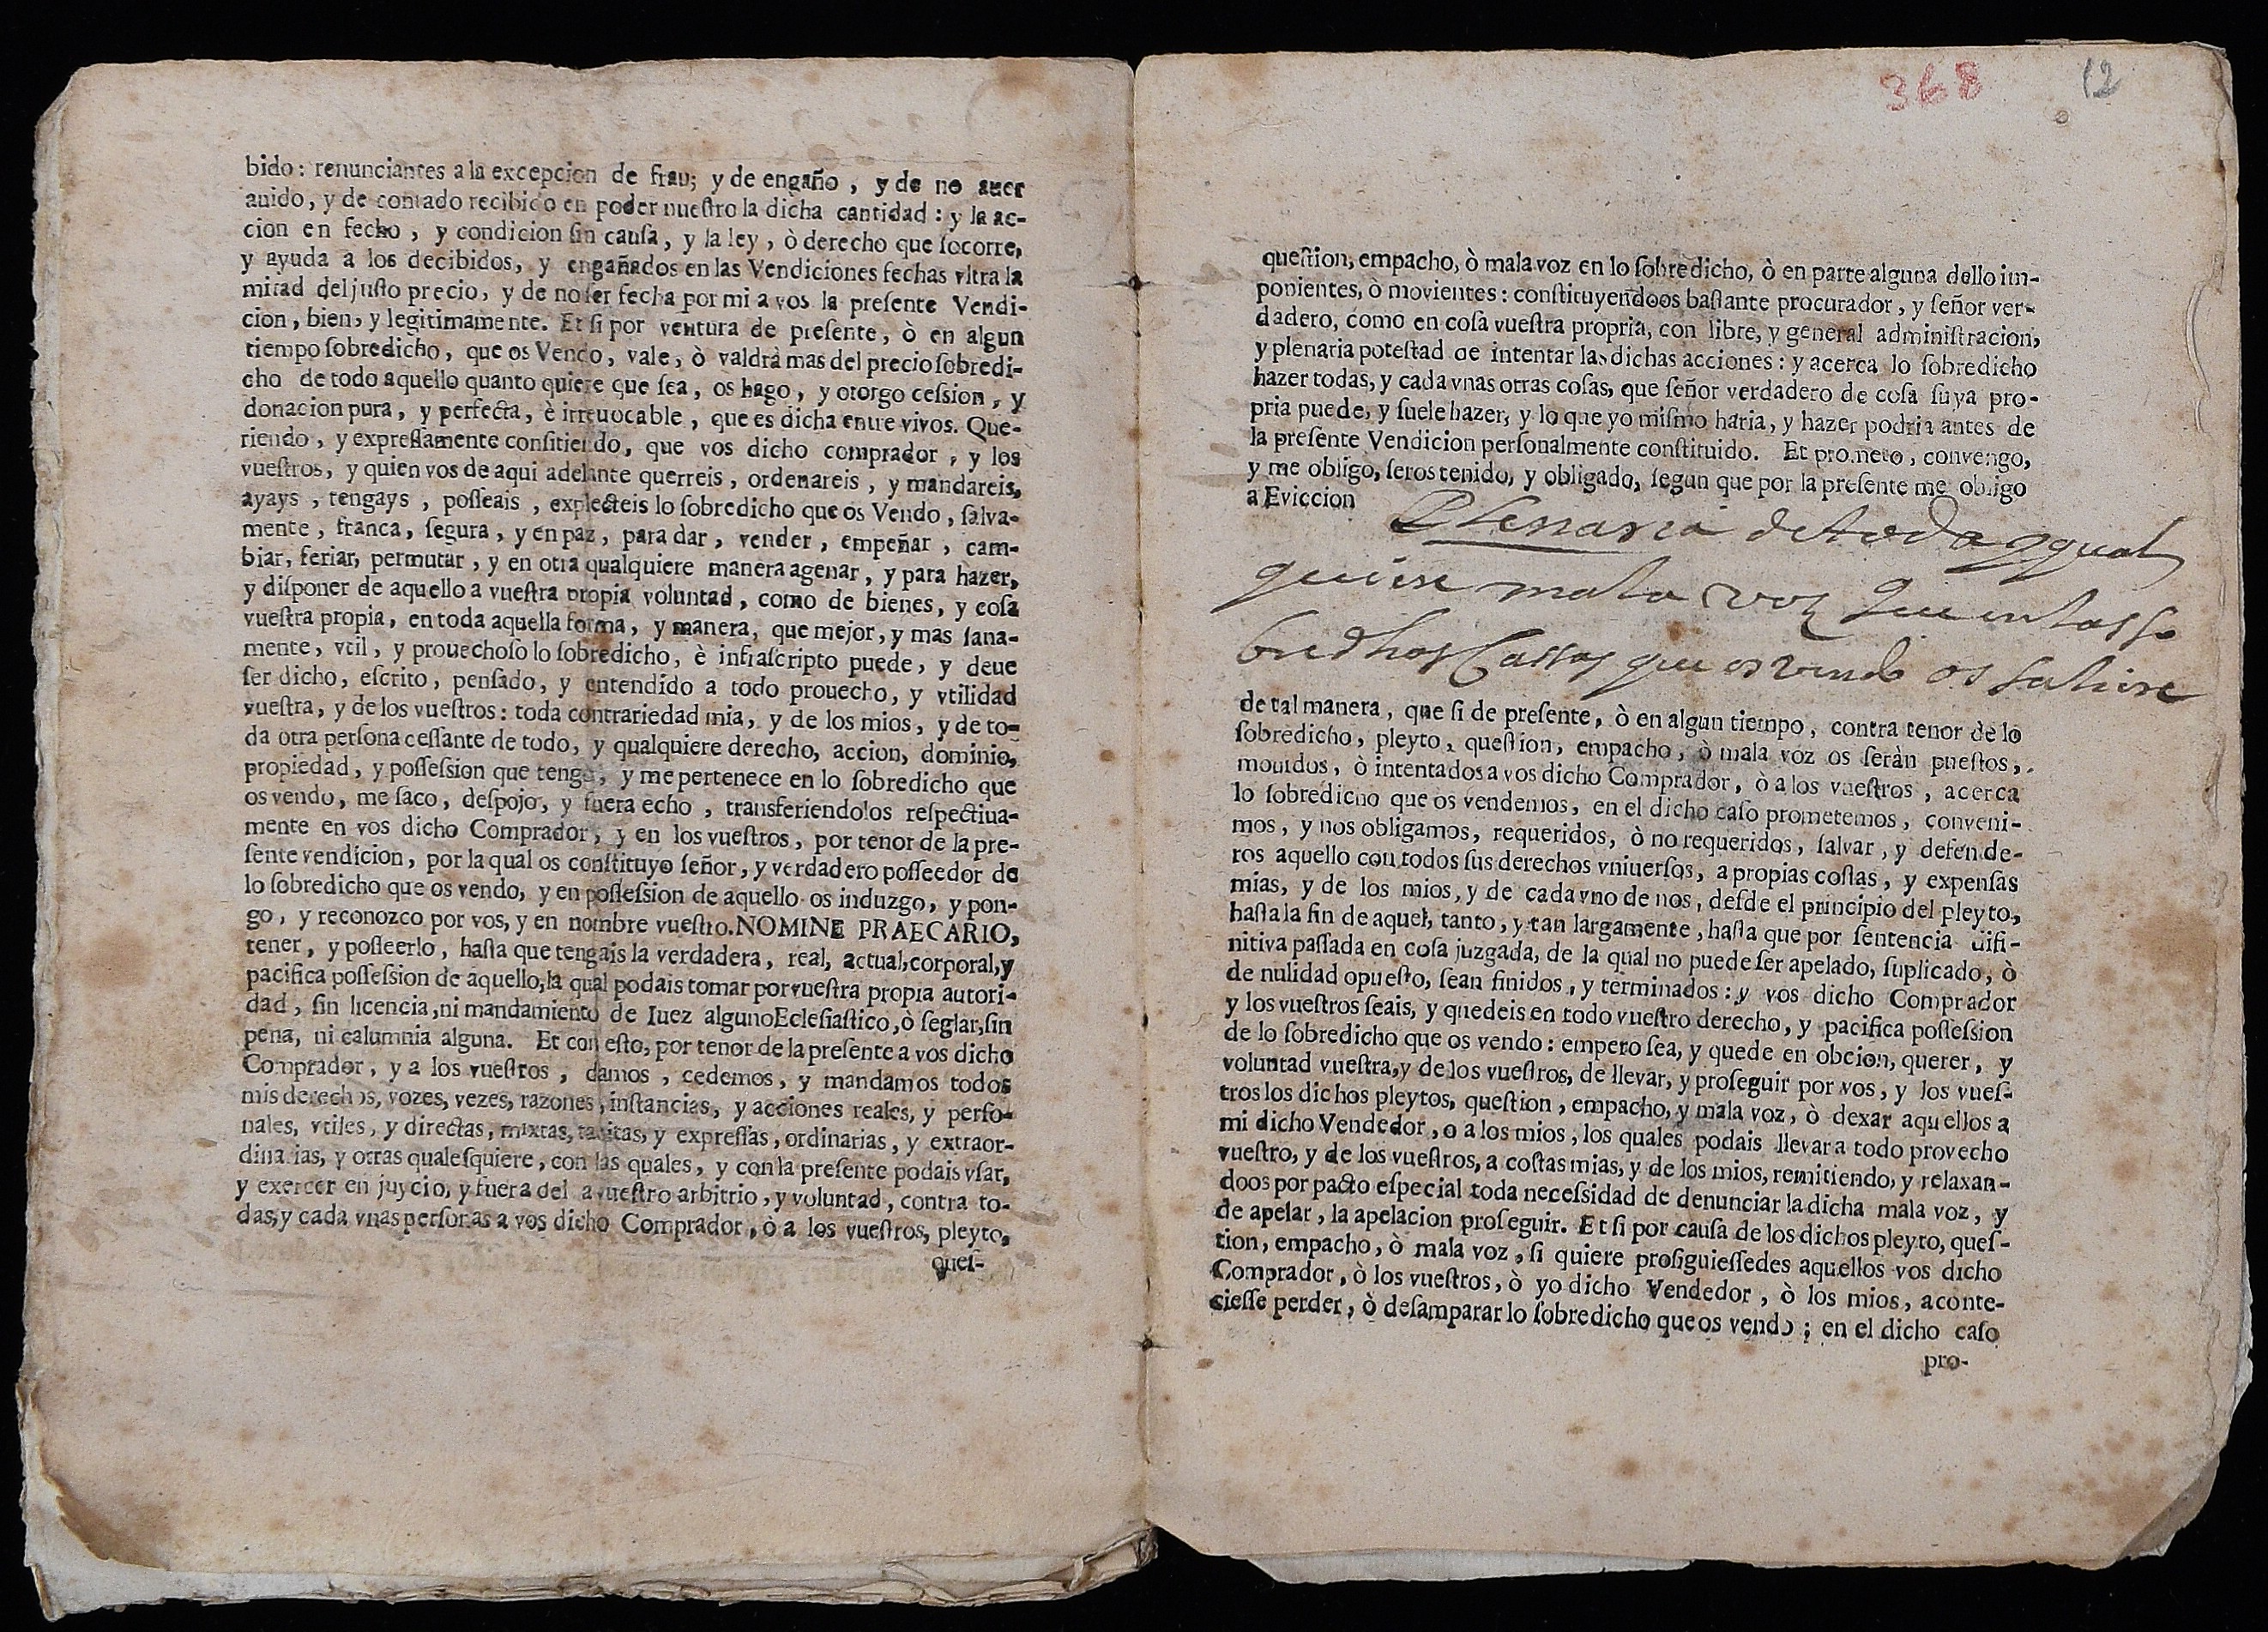 bido: renunciantes a la excepcion de frau; y de engaño, y de no auer
auido, y de contado recibido en poder nuestro la dicha cantidad: y la ac-
cion en fecho, y condicion sin causa, y la ley, ò derecho que socorre,
y ayuda a los decibidos, y engañados en las Vendiciones fechas vltra la
mitad del justo precio, y de no ser fecha por mi a vos la presente Vendi-
cion, bien, y legitimamente. Et si por ventura de presente, ò en algun
tiempo sobredicho, que os Vendo, vale, ò valdrà mas del precio sobredi-
cho de todo aquello quanto quiere que sea, os hago, y otorgo cession, y
donacion pura, y perfecta, è irreuocable, que es dicha entre vivos. Que-
riendo, y expressamente consitiendo, que vos dicho comprador, y los
vuestros, y quien vos de aqui adelante querreis, ordenareis, y mandareis,
ayays, tengays, posseais, explecteis lo sobredicho que os Vendo, salva-
mente, franca, segura, y en paz, para dar, vender, empeñar, cam-
biar, feriar, permutar, y en otra qualquiere manera agenar, y para hazer,
y disponer de aquello a vuestra propia voluntad, como de bienes, y cosa
vuestra propia, en toda aquella forma, y manera, que mejor, y mas sana-
mente, vtil, y prouechoso lo sobredicho, è infrascripto puede, y deue
ser dicho, escrito, pensado, y entendido a todo prouecho, y vtilidad
vuestra, y de los vuestros: toda contrariedad mia, y de los mios, y de to-
da otra persona cessante de todo, y qualquiere derecho, accion, dominio,
propiedad, y possession que tengo, y me pertenece en lo sobredicho que
os vendo, me saco, despojo, y fuera echo, transferiendolos respectiua-
mente en vos dicho Comprador, y en los vuestros, por tenor de la pre-
sente vendicion, por la qual os constituyo señor, y verdadero posseedor de
lo sobredicho que os vendo, y en possession de aquello os induzgo, y pon-
go, y reconozco por vos, y en nombre vuestro. NOMINE PRAECARIO,
tener, y posseerlo, hasta que tengais la verdadera, real, actual, corporal, y
pacifica possession de aquello, la qual podais tomar por vuestra propia autori-
dad, sin licencia, ni mandamiento de Iuez alguno Eclesiastico, ò seglar, sin
pena, ni calumnia alguna. Et con esto, por tenor de la presente a vos dicho
Comprador, y a los vuestros, damos, cedemos, y mandamos todos
mis derechos, vozes, vezes, razones, instancias, y acciones reales, y perso-
nales, vtiles, y directas, mixtas, tacitas, y expressas, ordinarias, y extraor-
dinarias, y otras qualesquiere, con las quales, y con la presente podais vsar,
y exercer en juycio, y fuera del a vuestro arbitrio, y voluntad, contra to-
das, y cada vnas personas a vos dicho Comprador, ò a los vuestros, pleyto,
ques-
368 12
question, empacho, ò mala voz en lo sobredicho, ò en parte alguna dello im-
ponientes, ò movientes: constituyendoos bastante procurador, y señor ver-
dadero, como en cosa vuestra propria, con libre, y general administracion,
y plenaria potestad de intentar las dichas acciones: y acerca lo sobredicho
hazer todas, y cada vnas otras cosas, que señor verdadero de cosa suya pro-
pria puede, y suele hazer, y lo que yo mismo haria, y hazer podria antes de
la presente Vendicion personalmente constituido. Et prometo, convengo,
y me obligo, seros tenido, y obligado, segun que por la presente me obligo
a Eviccion Plenaria de toda y qual
quiere mala voz que en las so
bredhas Cassas que os vendo os saliere
de tal manera, que si de presente, ò en algun tiempo, contra tenor dè lo
sobredicho, pleyto, question, empacho, ò mala voz os seràn puestos,
mouidos, ò intentados a vos dicho Comprador, ò a los vuestros, acerca
lo sobredicho que os vendemos, en el dicho caso prometemos, conveni-
mos, y nos obligamos, requeridos, ò no requeridos, salvar, y defende-
ros aquello con todos sus derechos vniuersos, a propias costas, y expensas
mias, y de los mios, y de cada vno de nos, desde el principio del pleyto,
hasta la fin de aquel, tanto, y tan largamente, hasta que por sentencia difi-
nitiva passada en cosa juzgada, de la qual no puede ser apelado, suplicado, ò
de nulidad opuesto, sean finidos, y terminados: y vos dicho Comprador
y los vuestros seais, y quedeis en todo vuestro derecho, y pacifica possession
de lo sobredicho que os vendo: empero sea, y quede en obcion, querer, y
voluntad vuestra, y de los vuestros, de llevar, y proseguir por vos, y los vues-
tros los dichos pleytos, question, empacho, y mala voz, ò dexar aquellos a
mi dicho Vendedor, o a los mios, los quales podais llevar a todo provecho
vuestro, y de los vuestros, a costas mias, y de los mios, remitiendo, y relaxan-
doos por pacto especial toda necessidad de denunciar la dicha mala voz, y
de apelar, la apelacion proseguir. Et si por causa de los dichos pleyto, ques-
tion, empacho, ò mala voz, si quiere prosiguiessedes aquellos vos dicho
Comprador, ò los vuestros, ò yo dicho Vendedor, ò los mios, aconte-
ciesse perder, ò desamparar lo sobredicho que os vendo; en el dicho caso
pro-